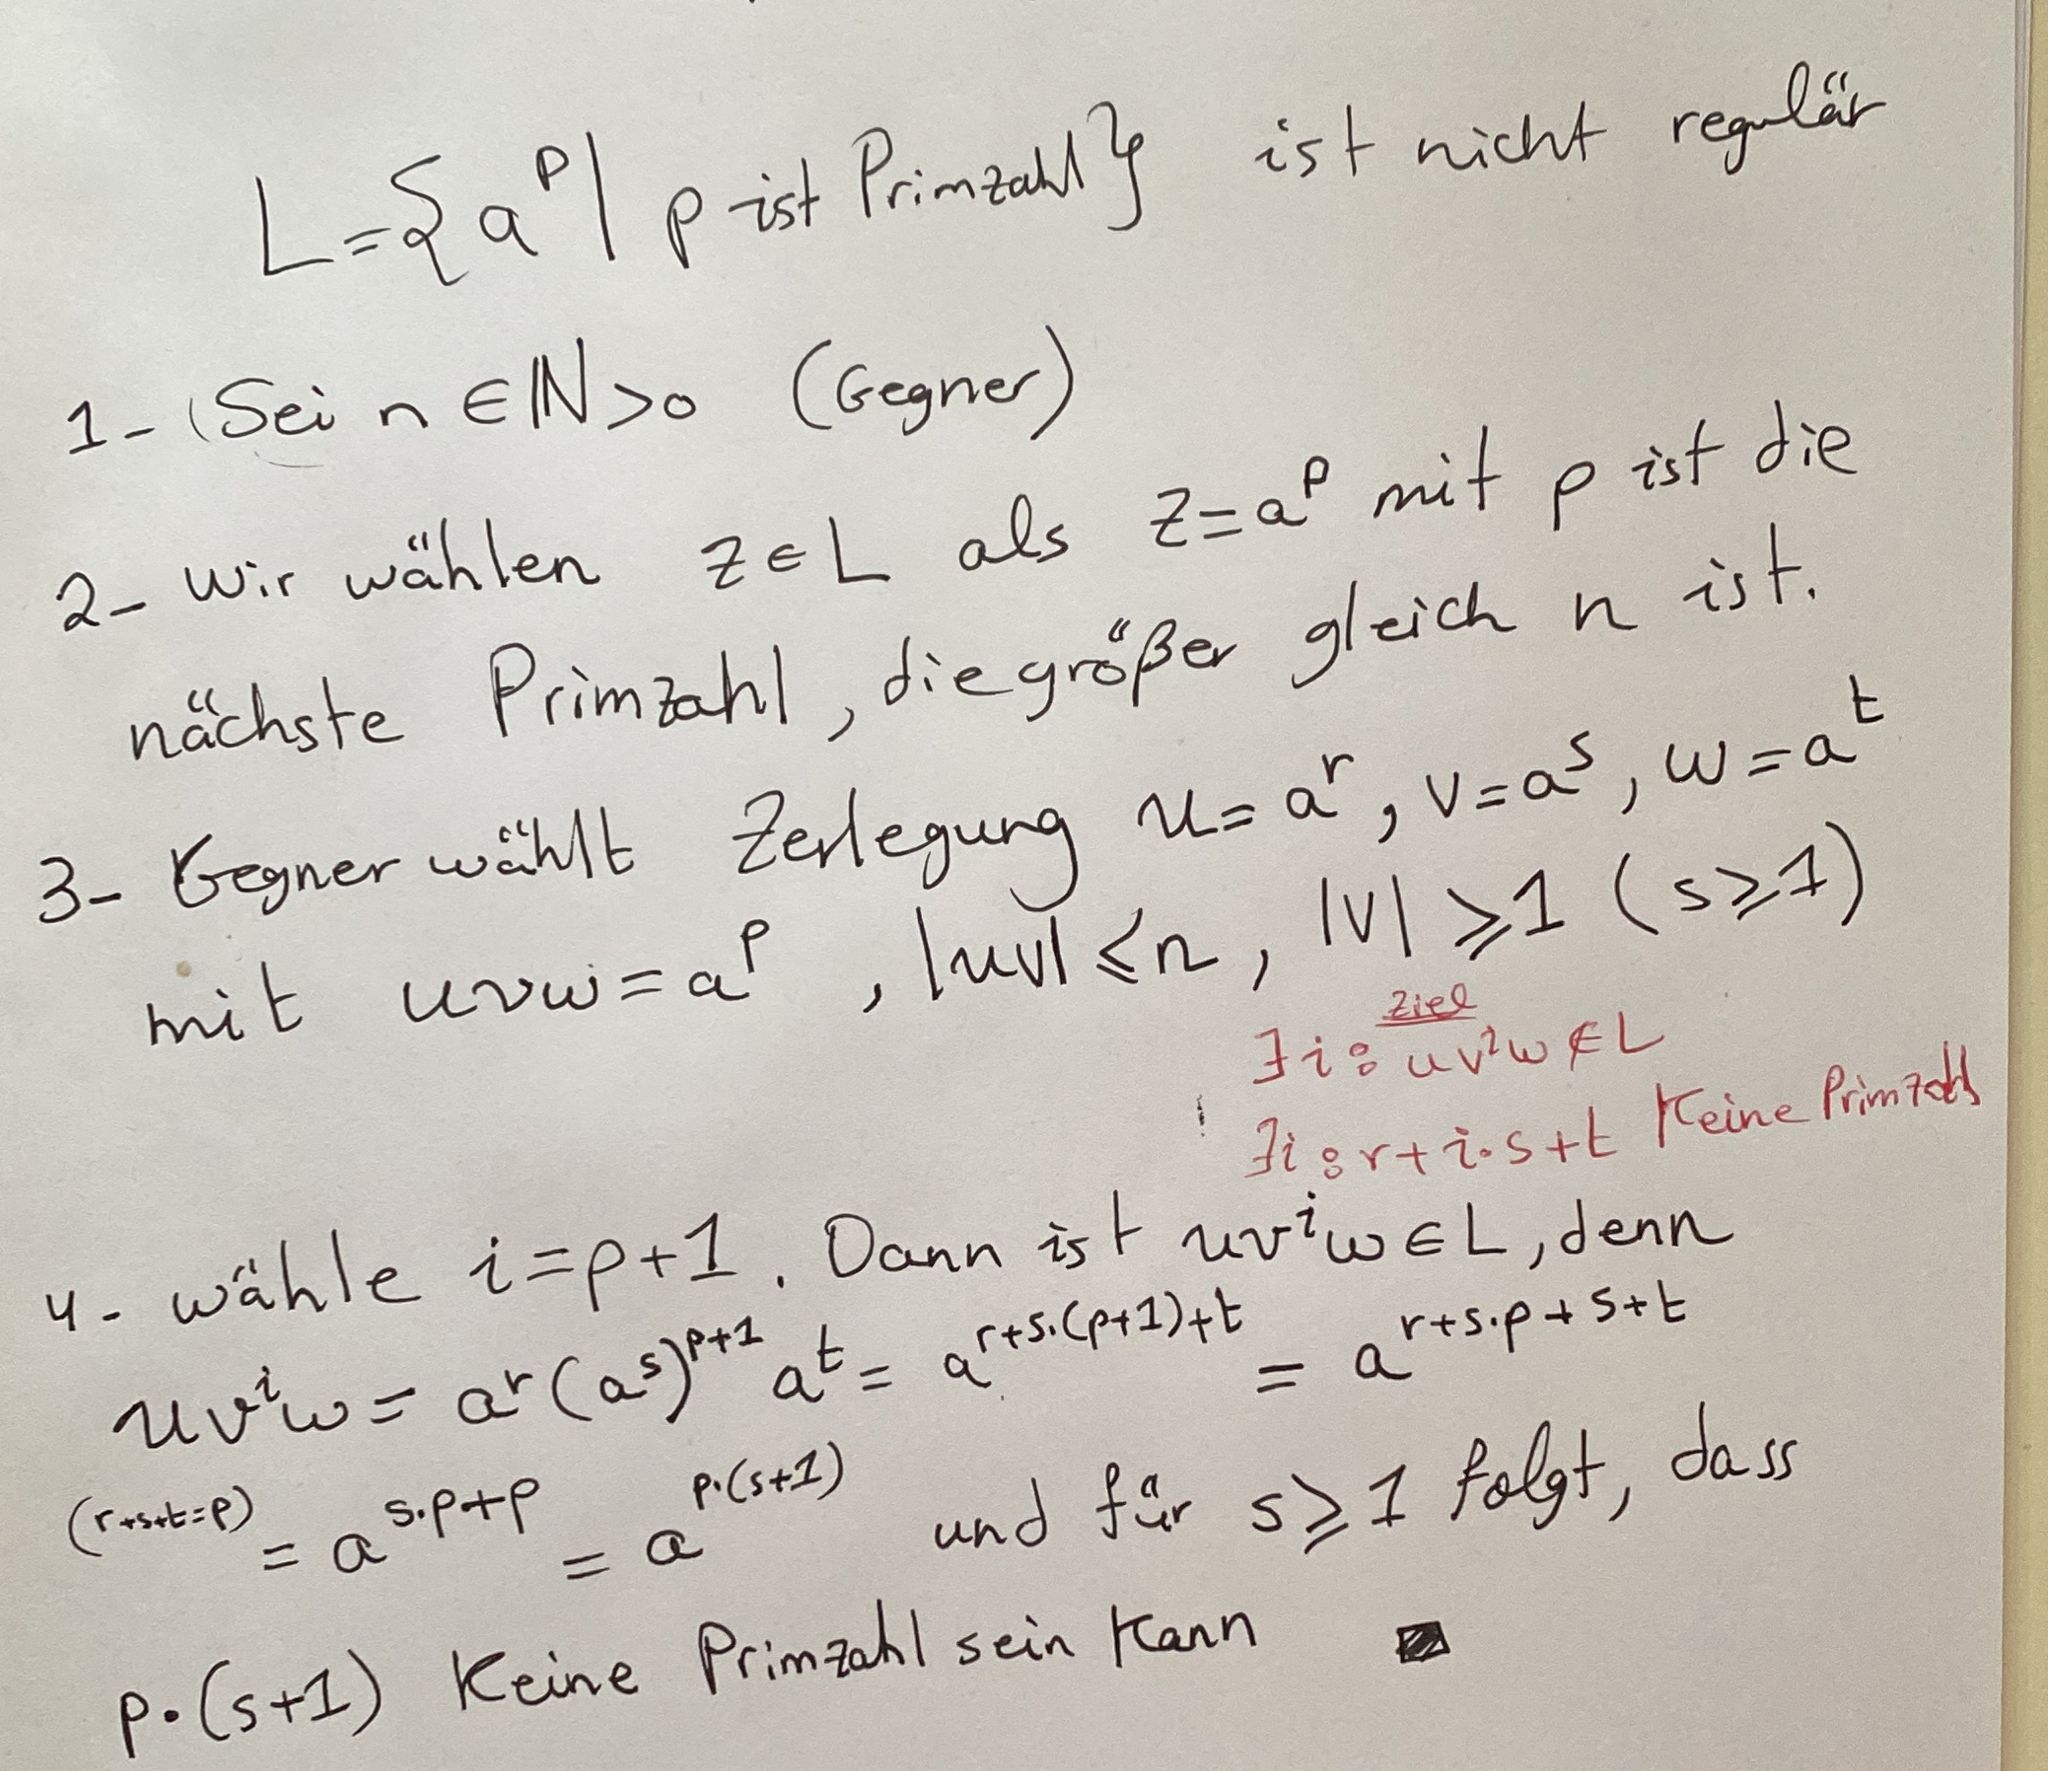 L={a^p | p ist Primzahl} ist nicht regulär
1- Sei n ∈ ℕ>0 (Gegner)
2- Wir wählen z ∈ L als z=a^p mit p ist die
nächste Primzahl, die größer gleich n ist.
3- Gegner wählt Zerlegung u=a^r, v=a^s, w=a^t
mit uvw=a^p, |uv|⩽n, |v|⩾1 (s⩾1)
Ziel
∃i: uv^iw ∉ L
∃i: r+i·s+t Keine Primzahl
4- wähle i=p+1. Dann ist uv^iw ∈ L, denn
uv^iw = a^r(a^s)^{p+1} a^t = a^{r+s·(p+1)+t} = a^{r+s·p+s+t}
(r+s+t=p) = a^{s·p+p} = a^{p·(s+1)} und für s⩾1 folgt, dass
p·(s+1) Keine Primzahl sein Kann